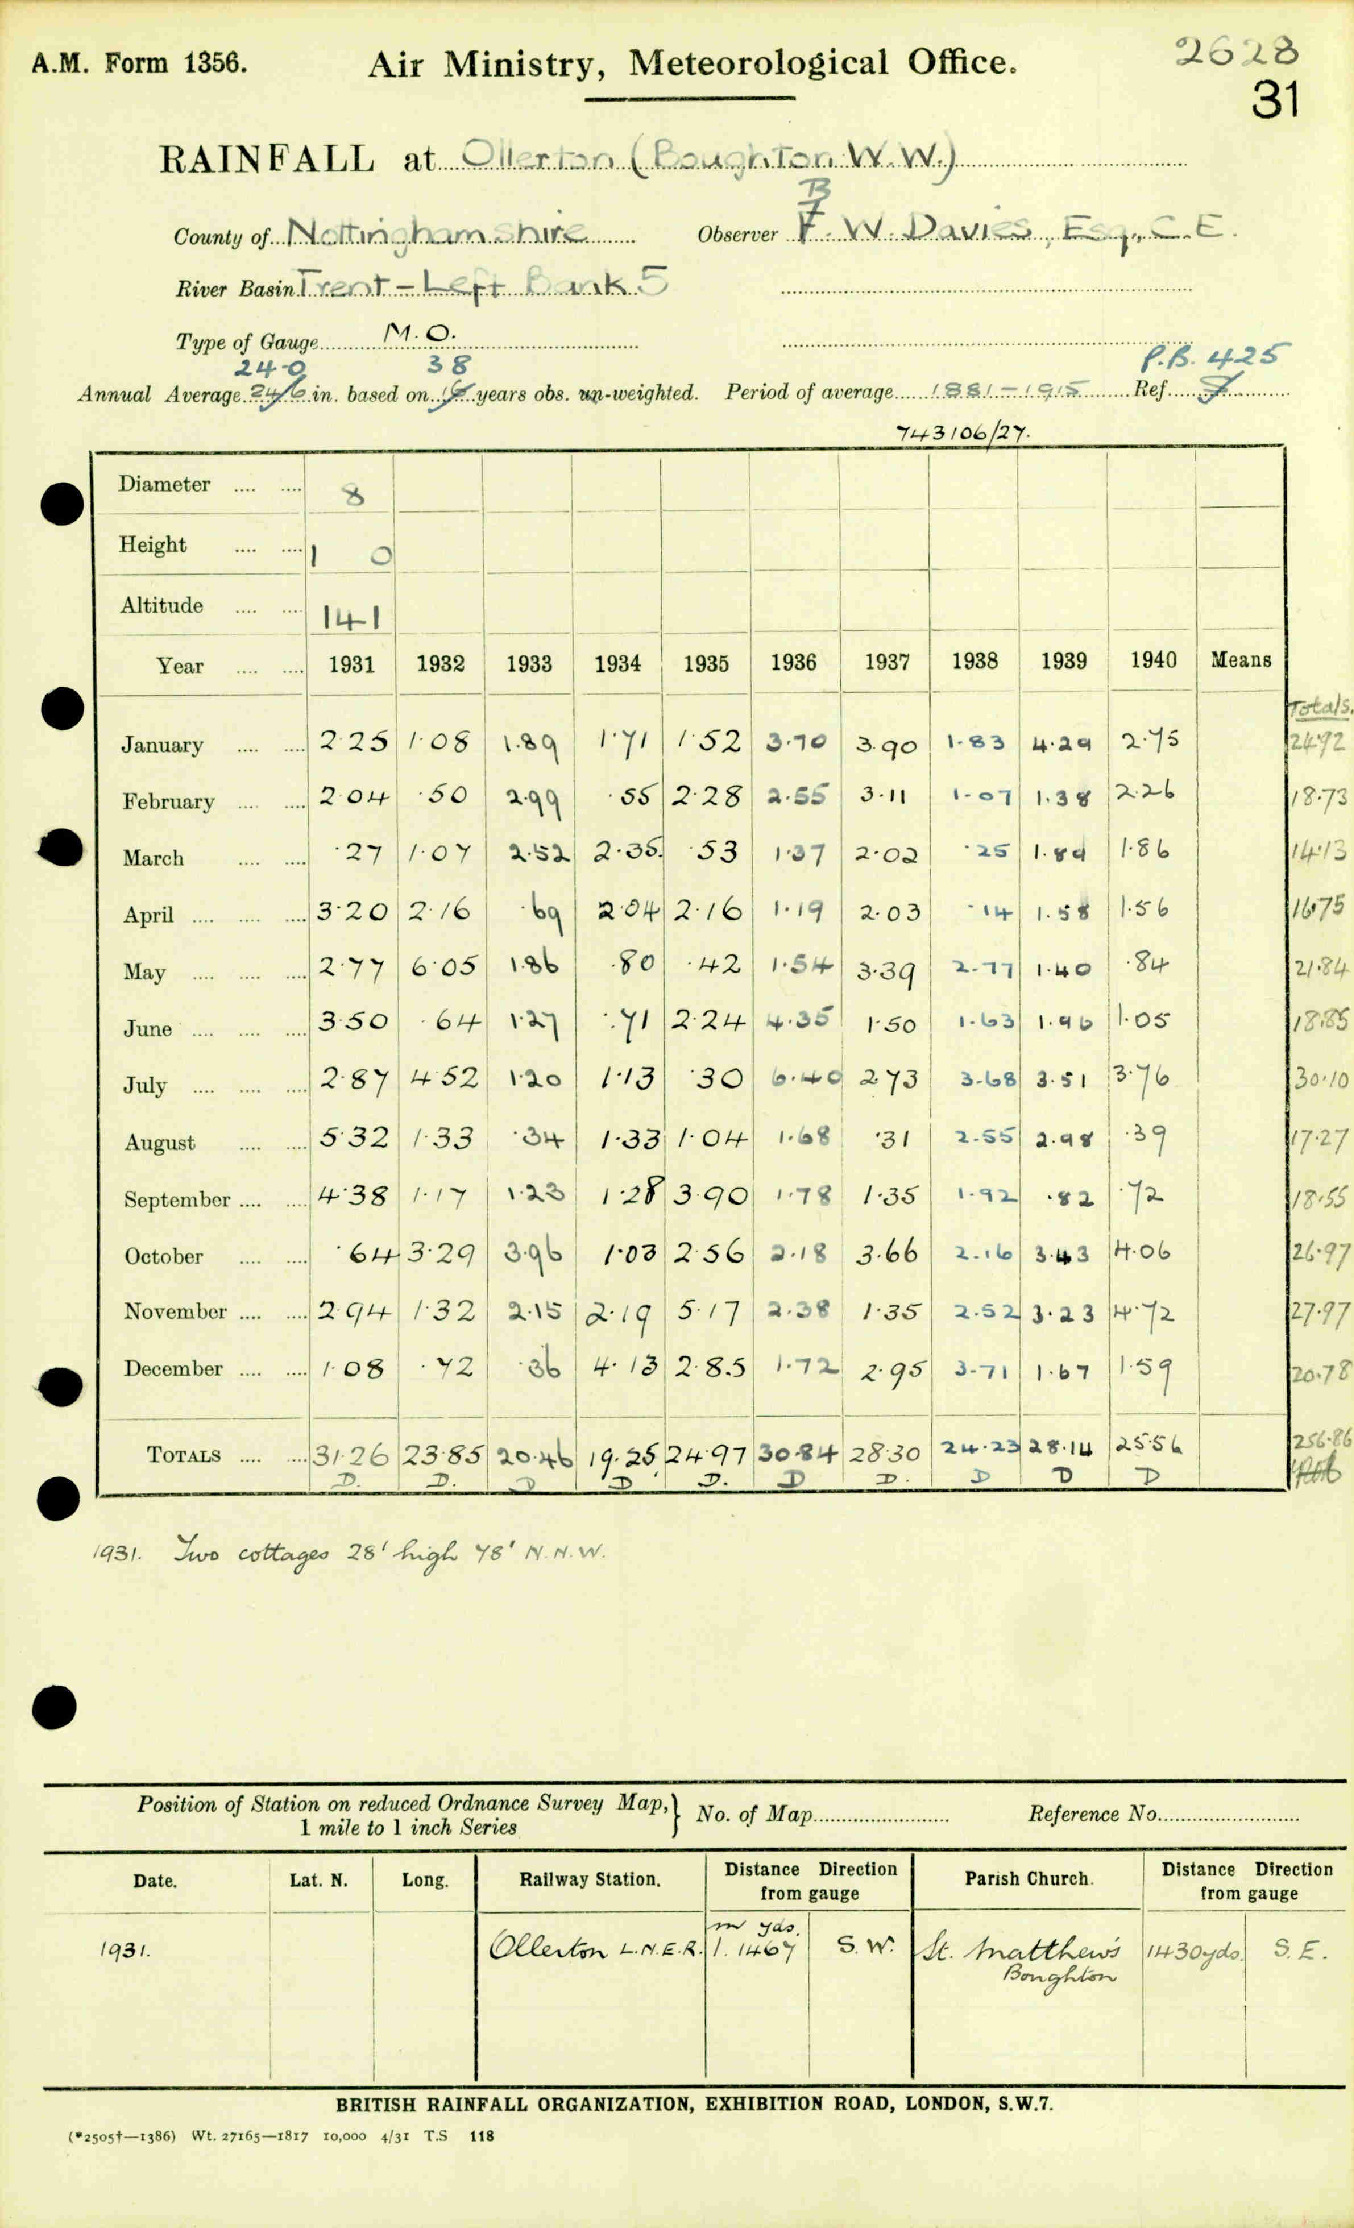 A.M. Form 1356. Air Ministry, Meteorological Office. 2628
31
RAINFALL at Ollerton (Boughton W.W.)
B
County of Nottinghamshire Observer F. W. Davies, Esq., C.E.
River Basin Trent - Left Bank 5
Type of Gauge M.O.
24.0 38 P.B. 425
Annual Average 24.6 in. based on years obs. un-weighted. Period of average 1881-1915 Ref.
743106/27.
Diameter .... .... 8
Height .... .... 1 0
Altitude .... .... 141
Year .... .... 1931 1932 1933 1934 1935 1936 1937 1938 1939 1940 Means
Totals.
January .... .... 2.25 1.08 1.89 1.71 1.52 3.70 3.90 1.83 4.29 2.75 24.92
February .... .... 2.04 .50 2.99 .55 2.28 2.55 3.11 1.07 1.38 2.26 18.73
March .... .... .27 1.07 2.52 2.35 .53 1.37 2.02 .25 1.89 1.86 14.13
April .... .... .... 3.20 2.16 .69 2.04 2.16 1.19 2.03 .14 1.58 1.56 16.75
May .... .... .... 2.77 6.05 1.86 .80 .42 1.54 3.39 2.77 1.40 .84 21.84
June .... .... .... 3.50 .64 1.27 .71 2.24 4.35 1.50 1.63 1.96 1.05 18.85
July .... .... .... 2.87 4.52 1.20 1.13 .30 6.40 2.73 3.68 3.51 3.76 30.10
August .... .... 5.32 1.33 .34 1.33 1.04 1.68 .31 2.55 2.98 .39 17.27
September .... .... 4.38 1.17 1.23 1.28 3.90 1.78 1.35 1.92 .82 .72 18.55
October .... .... .64 3.29 3.96 1.03 2.56 2.18 3.66 2.16 3.43 4.06 26.97
November .... .... 2.94 1.32 2.15 2.19 5.17 2.38 1.35 2.52 3.23 4.72 27.97
December .... .... 1.08 .72 .36 4.13 2.85 1.72 2.95 3.71 1.67 1.59 20.78
TOTALS .... .... 31.26 23.85 20.46 19.25 24.97 30.84 28.30 24.23 28.14 25.56 256.86
D. D. D D D. D D. D D D
1931. Two cottages 28' high 78' N.N.W.
Position of Station on reduced Ordnance Survey Map,} No. of Map Reference No.
1 mile to 1 inch Series
Date. Lat. N. Long. Railway Station. Distance Direction Parish Church. Distance Direction
from gauge from gauge
m yds.
1931. Ollerton L.N.E.R. 1. 1467 S.W. St. Matthew's 1430yds. S.E.
Boughton
BRITISH RAINFALL ORGANIZATION, EXHIBITION ROAD, LONDON, S.W.7.
(*2505†—1386) Wt. 27165—1817 10,000 4/31 T.S 118